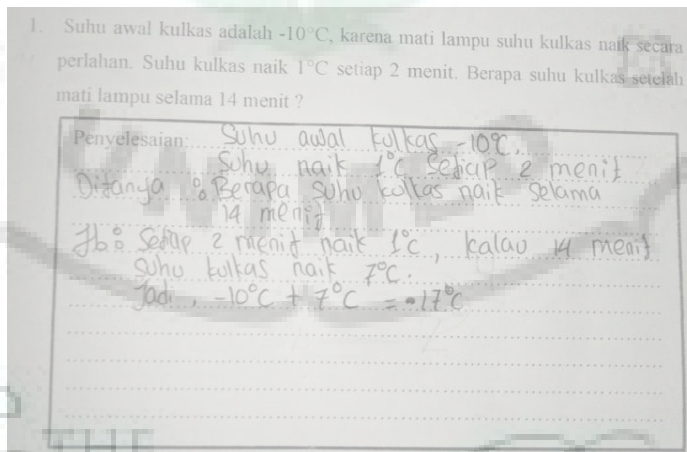 1. Suhu awal kulkas adalah -10°C, karena mati lampu suhu kulkas naik secara
perlahan. Suhu kulkas naik 1°C setiap 2 menit. Berapa suhu kulkas setelah
mati lampu selama 14 menit ?
Penyelesaian: Suhu awal kulkas -10°C.
Suhu naik 1°C setiap 2 menit
Ditanya : Berapa suhu kulkas naik selama
14 menit
Jb : Setiap 2 menit naik 1°C, kalau 14 menit
suhu kulkas naik 7°C.
Jadi, -10°C + 7°C = -17°C
THE